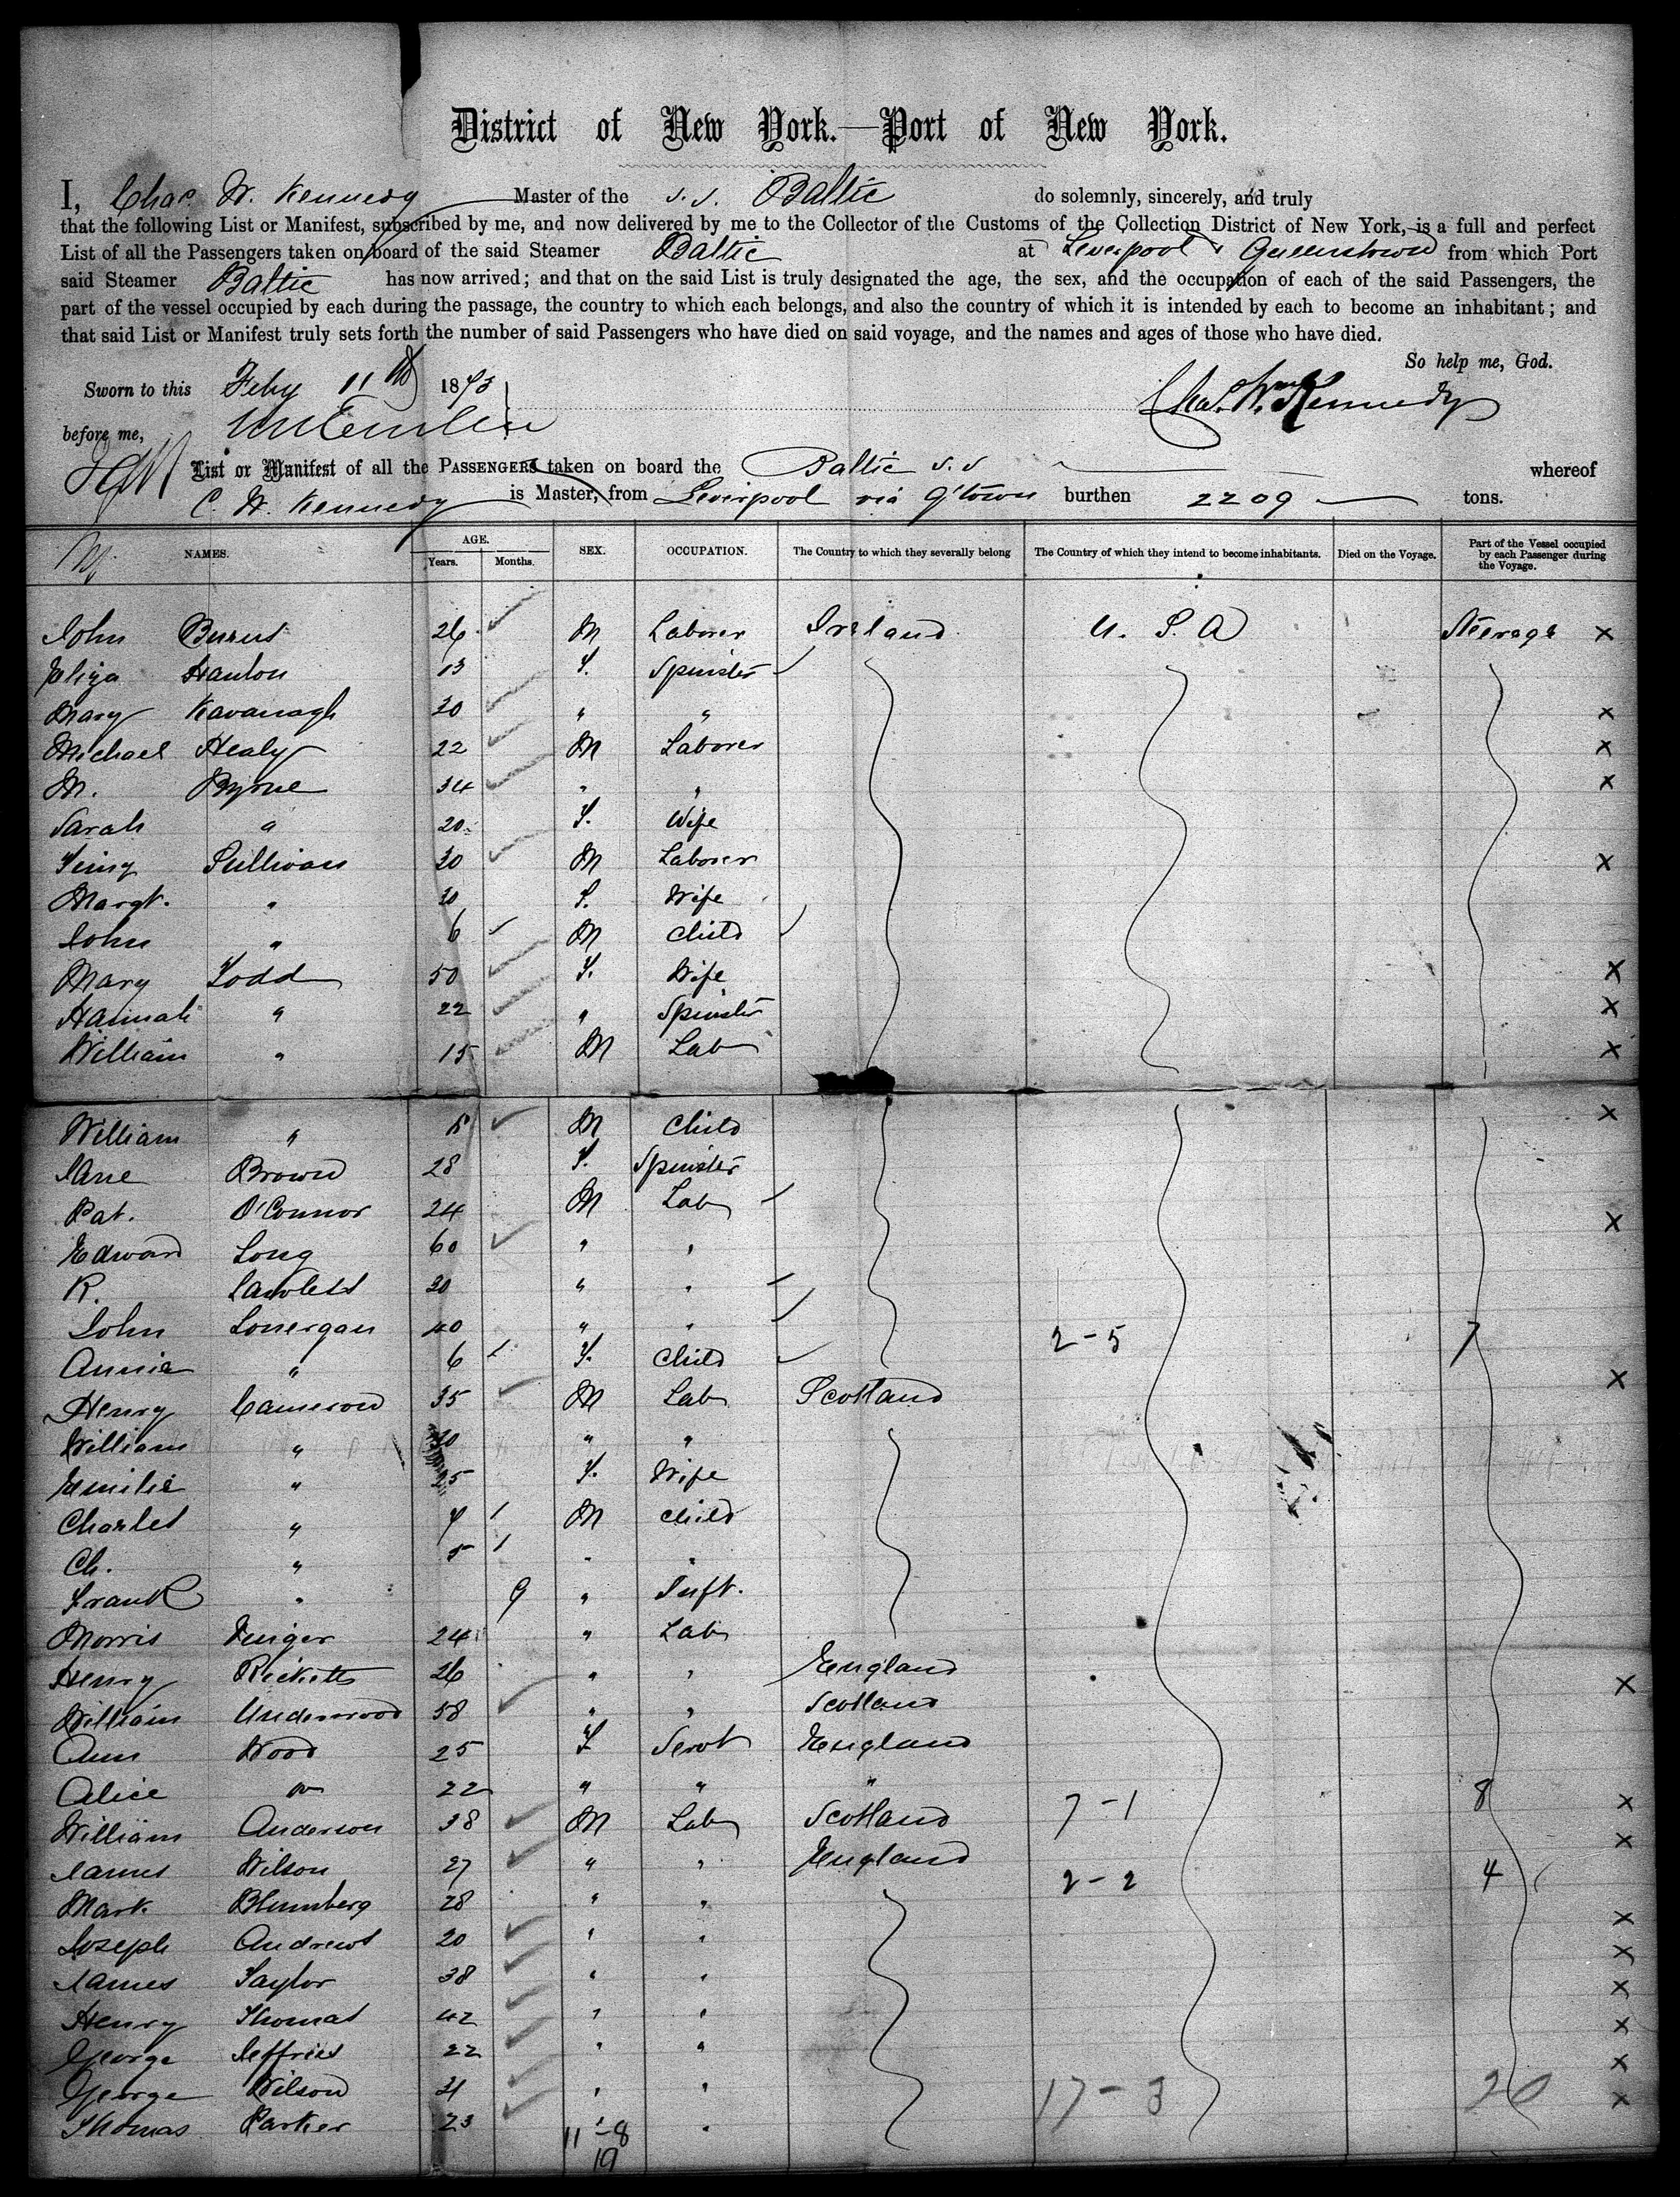 District of New York.—Port of New York.
I, Chas. W. Kennedy Master of the S.S. Baltic do solemnly, sincerely, and truly
that the following List or Manifest, subscribed by me, and now delivered by me to the Collector of the Customs of the Collection District of New York, is a full and perfect
List of all the Passengers taken on board of the said Steamer Baltic at Liverpool & Queenstown from which Port
said Steamer Baltic has now arrived; and that on the said List is truly designated the age, the sex, and the occupation of each of the said Passengers, the
part of the vessel occupied by each during the passage, the country to which each belongs, and also the country of which it is intended by each to become an inhabitant; and
that said List or Manifest truly sets forth the number of said Passengers who have died on said voyage, and the names and ages of those who have died.
So help me, God.
Sworn to this Feby 11th 1873 Chas. Wm. Kennedy
before me,
List or Manifest of all the PASSENGERS taken on board the Baltic S.S whereof
C. W. Kennedy is Master, from Liverpool via Q'town burthen 2209 tons.
NAMES. AGE. Years. Months. SEX. OCCUPATION. The Country to which they severally belong The Country of which they intend to become inhabitants. Died on the Voyage. Part of the Vessel occupied by each Passenger during the Voyage.
John Burns 26 M Laborer Ireland U. S. A Steerage x
Eliza Hanlon 13 F. Spinster
Mary Kavanagh 30 " " x
Michael Healy 22 M Laborer x
M. Byrne 34 " " x
Sarah " 20 F. Wife
Sullivan 30 M Laborer x
Margt. " 30 F. Wife
John " 6 M Child
Mary Todd 50 F. Wife x
Hannah " 22 " Spinster x
William " 15 M Lab x
William " M Child x
Jane Brown 28 F. Spinster
Pat. O'Connor 24 M Lab
Edward Long 60 " " x
R. Lawless 30 " "
John Lonergan 40 " " 2-5 7
Annie " 6 F. Child
Henry Cameron 35 M Lab Scotland x
William " 30 " "
Emilie " 25 F. Wife
Charles " M Child
Ch. " 5 " "
Frank " 9 " Inft.
Morris 24 " Lab
Henry Ricketts 26 " " England
William Underwood 58 " " Scotland x
Ann Wood 25 F Servt England
Alice " 22 " " " 7-1 8
William Anderson 38 M Lab Scotland x
James Wilson 27 " " England 2-2 4 x
Mark Blumberg 28 " "
Joseph Andrews 20 " " x
James Taylor 38 " " x
Henry Thomas 42 " " x
George Jeffries 22 " " x
George Wilson 31 " " 17-3 20 x
Thomas Parker 23 " " x
11-8
19